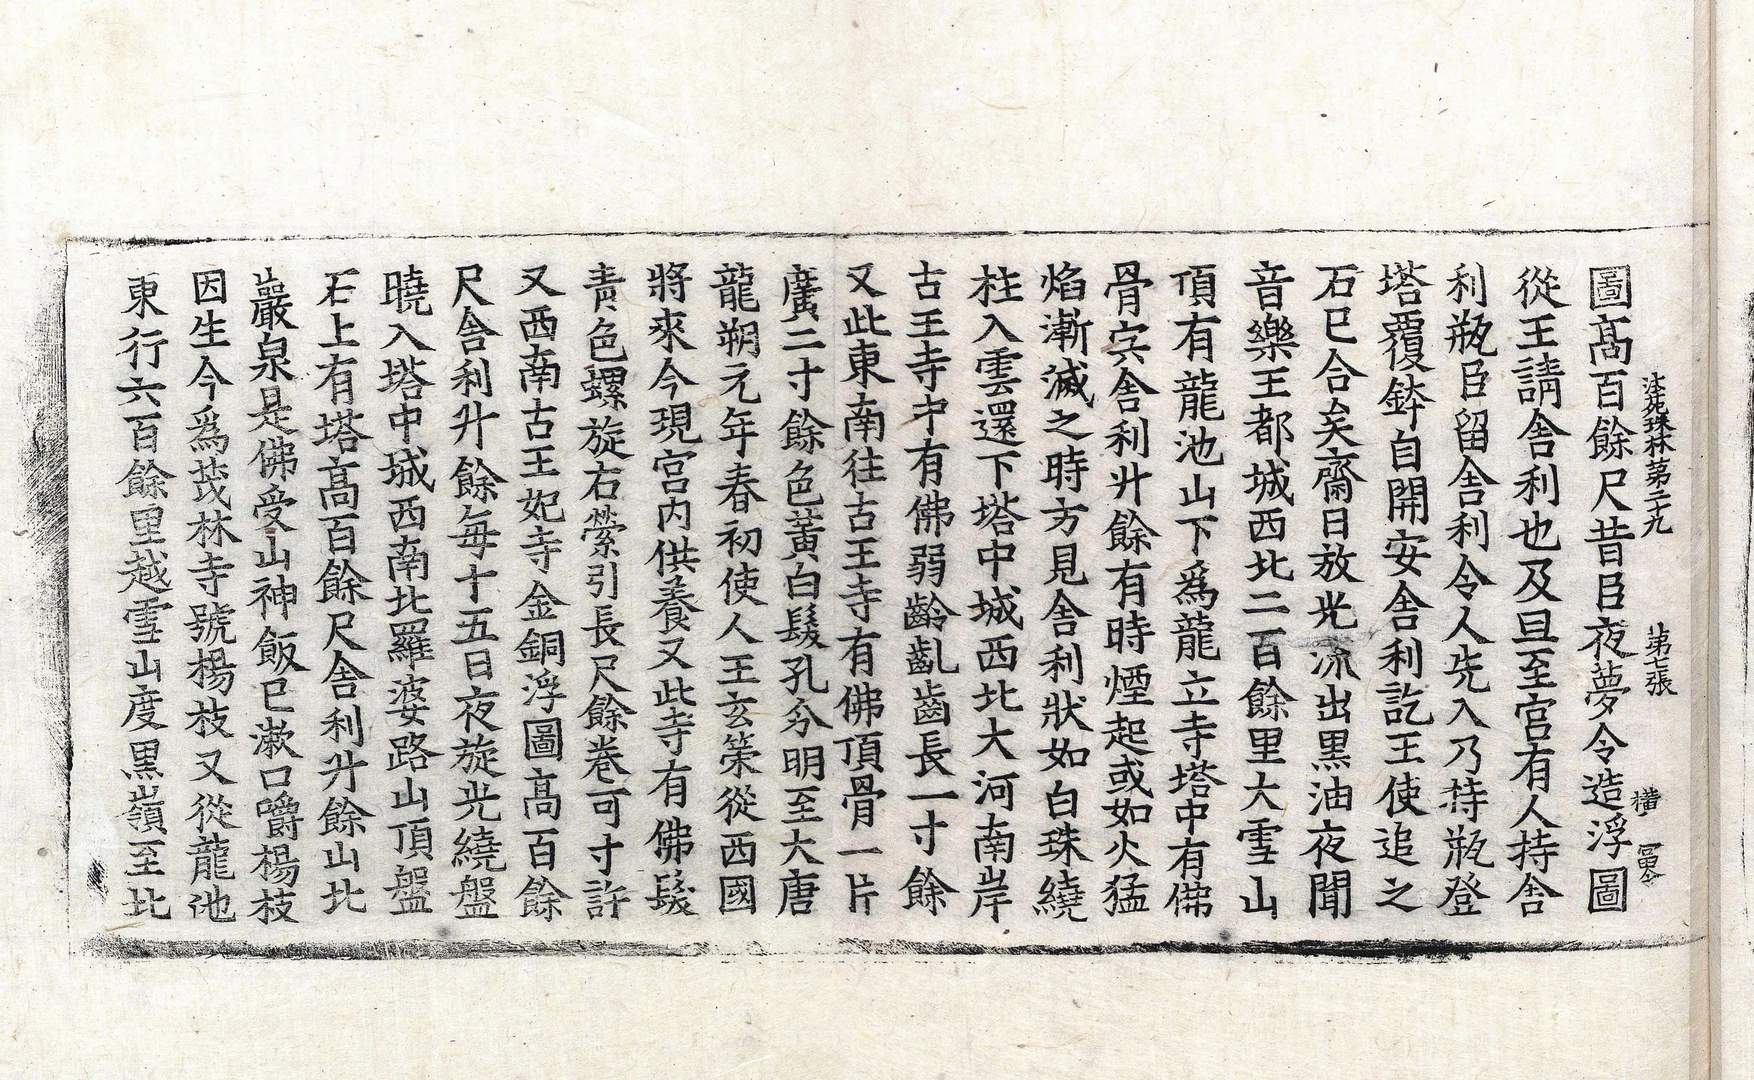 法苑珠林第二十九　第七張　橫
圖高百餘尺昔臣夜夢令造浮圖
從王請舍利也及旦至宮有人持舍
利瓶臣留舍利令人先入乃持瓶登
塔覆鉢自開安舍利訖王使追之
石已合矣齋日放光流出黑油夜聞
音樂王都城西北二百餘里大雪山
頂有龍池山下爲龍立寺塔中有佛
骨宍舍利升餘有時煙起或如火猛
焰漸滅之時方見舍利狀如白珠繞
柱入雲還下塔中城西北大河南岸
古王寺中有佛弱齡齓齒長一寸餘
又此東南往古王寺有佛頂骨一片
廣二寸餘色黃白髮孔分明至大唐
龍朔元年春初使人王玄策從西國
將來今現宮內供養又此寺有佛髮
靑色螺旋右縈引長尺餘卷可寸許
又西南古王妃寺金銅浮圖高百餘
尺舍利升餘每十五日夜旋光繞盤
曉入塔中城西南比羅婆路山頂盤
石上有塔高百餘尺舍利升餘山北
巖泉是佛受山神飯已漱口嚼楊枝
因生今爲茂林寺號楊枝又從龍池
東行六百餘里越雪山度黑嶺至北